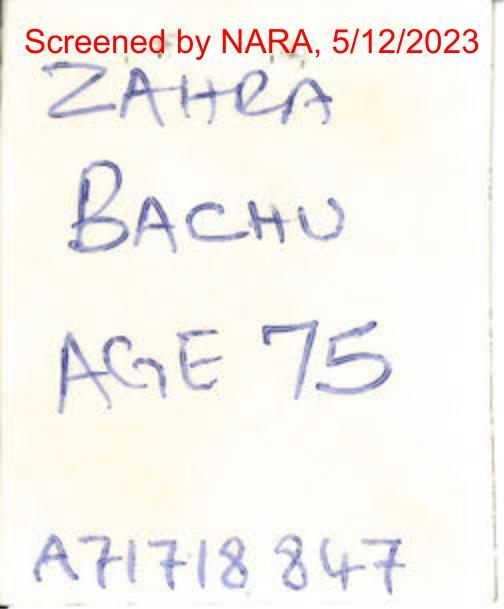 Screened by NARA, 5/12/2023
ZAHRA
BACHU
AGE 75
A71718847